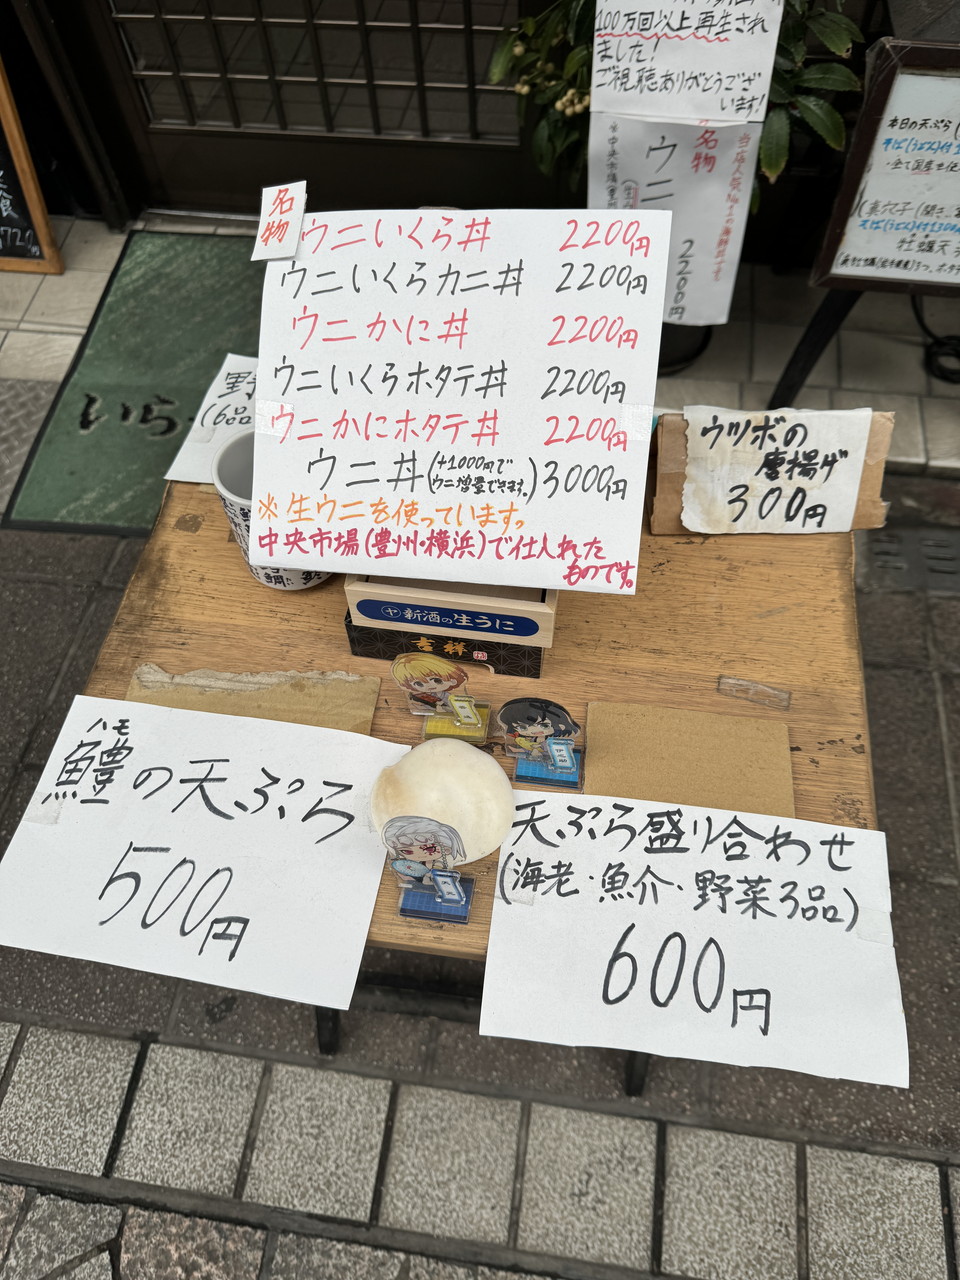 100万回以上再生され
ました！
ご視聴ありがとうござ
います！
当店人気No.1の海鮮丼です
名物
ウニ
2200円
※中央市場
本日の天ぷら
名物
ウニいくら丼 2200円
ウニいくらカニ丼 2200円
ウニかに丼 2200円
ウニいくらホタテ丼 2200円
ウニかにホタテ丼 2200円
ウニ丼(+1000円でウニ増量できます。) 3000円
※生ウニを使っています。
中央市場(豊州・横浜)で仕入れた
ものです。
ウツボの
唐揚げ
300円
野
(6品
いら
ヤ 新酒の生うに
吉祥
ハモ
鱧の天ぷら
500円
天ぷら盛り合わせ
(海老・魚介・野菜3品)
600円